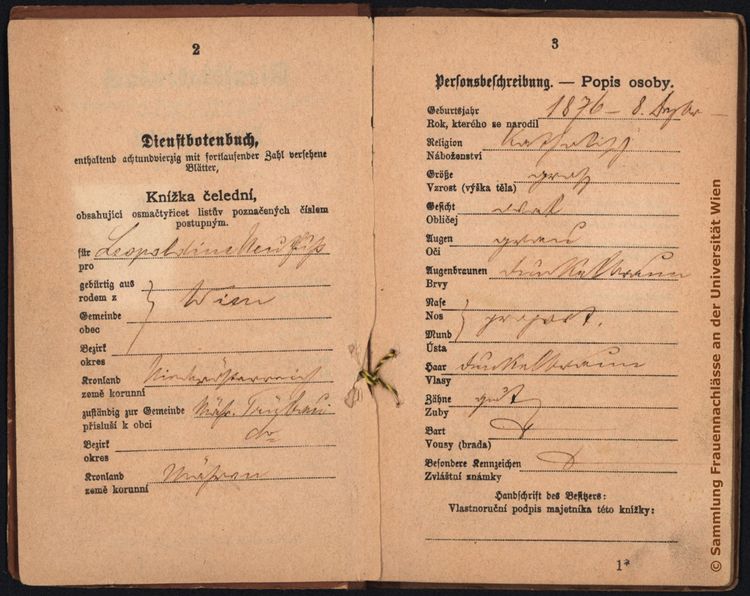 2
Dienstbotenbuch,
enthaltend achtundvierzig mit fortlaufender Zahl versehene
Blätter,
Knížka čelední,
obsahující osmačtyřicet listův poznačených číslem
postupným.
für Leopoldine
pro
gebürtig aus
rodem z
Gemeinde Wien
obec
Bezirk
okres
Kronland Niederösterreich
země korunní
zuständig zur Gemeinde Mähr. Trübau
přísluší k obci
Bezirk dto
okres
Kronland Mähren
země korunní
3
Personsbeschreibung. — Popis osoby.
Geburtsjahr 1876 – 8. Dezbr
Rok, kterého se narodil
Religion Katholisch
Náboženství
Größe groß
Vzrost (výška těla)
Gesicht oval
Obličej
Augen grau
Oči
Augenbraunen dunkelbraun
Brvy
Nase
Nos
proport.
Mund
Ústa
Haar dunkelbraun
Vlasy
Zähne gut
Zuby
Bart
Vousy (brada)
Besondere Kennzeichen
Zvláštní známky
Handschrift des Besitzers:
Vlastnoruční podpis majetníka této knížky:
1*
© Sammlung Frauennachlässe an der Universität Wien